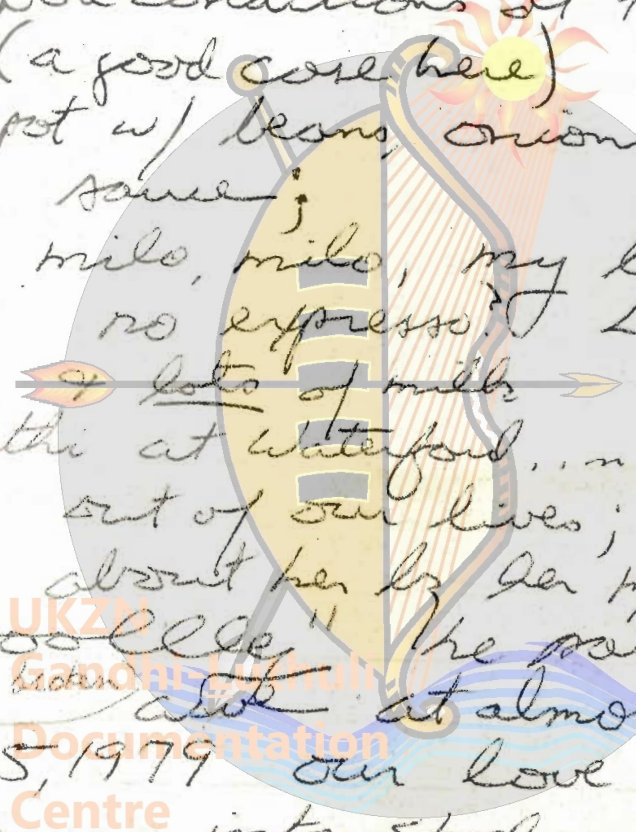 conditions of
(a good case here)
pot w/ beans, onion
sauce;
milo, milo, my
no expresso?
& lots of milk
thi at Waterford...
out of our lives;
about her by her
he
ask at almo
5, 1979 our love
UKZN
Gandhi-Luthuli
Documentation
Centre